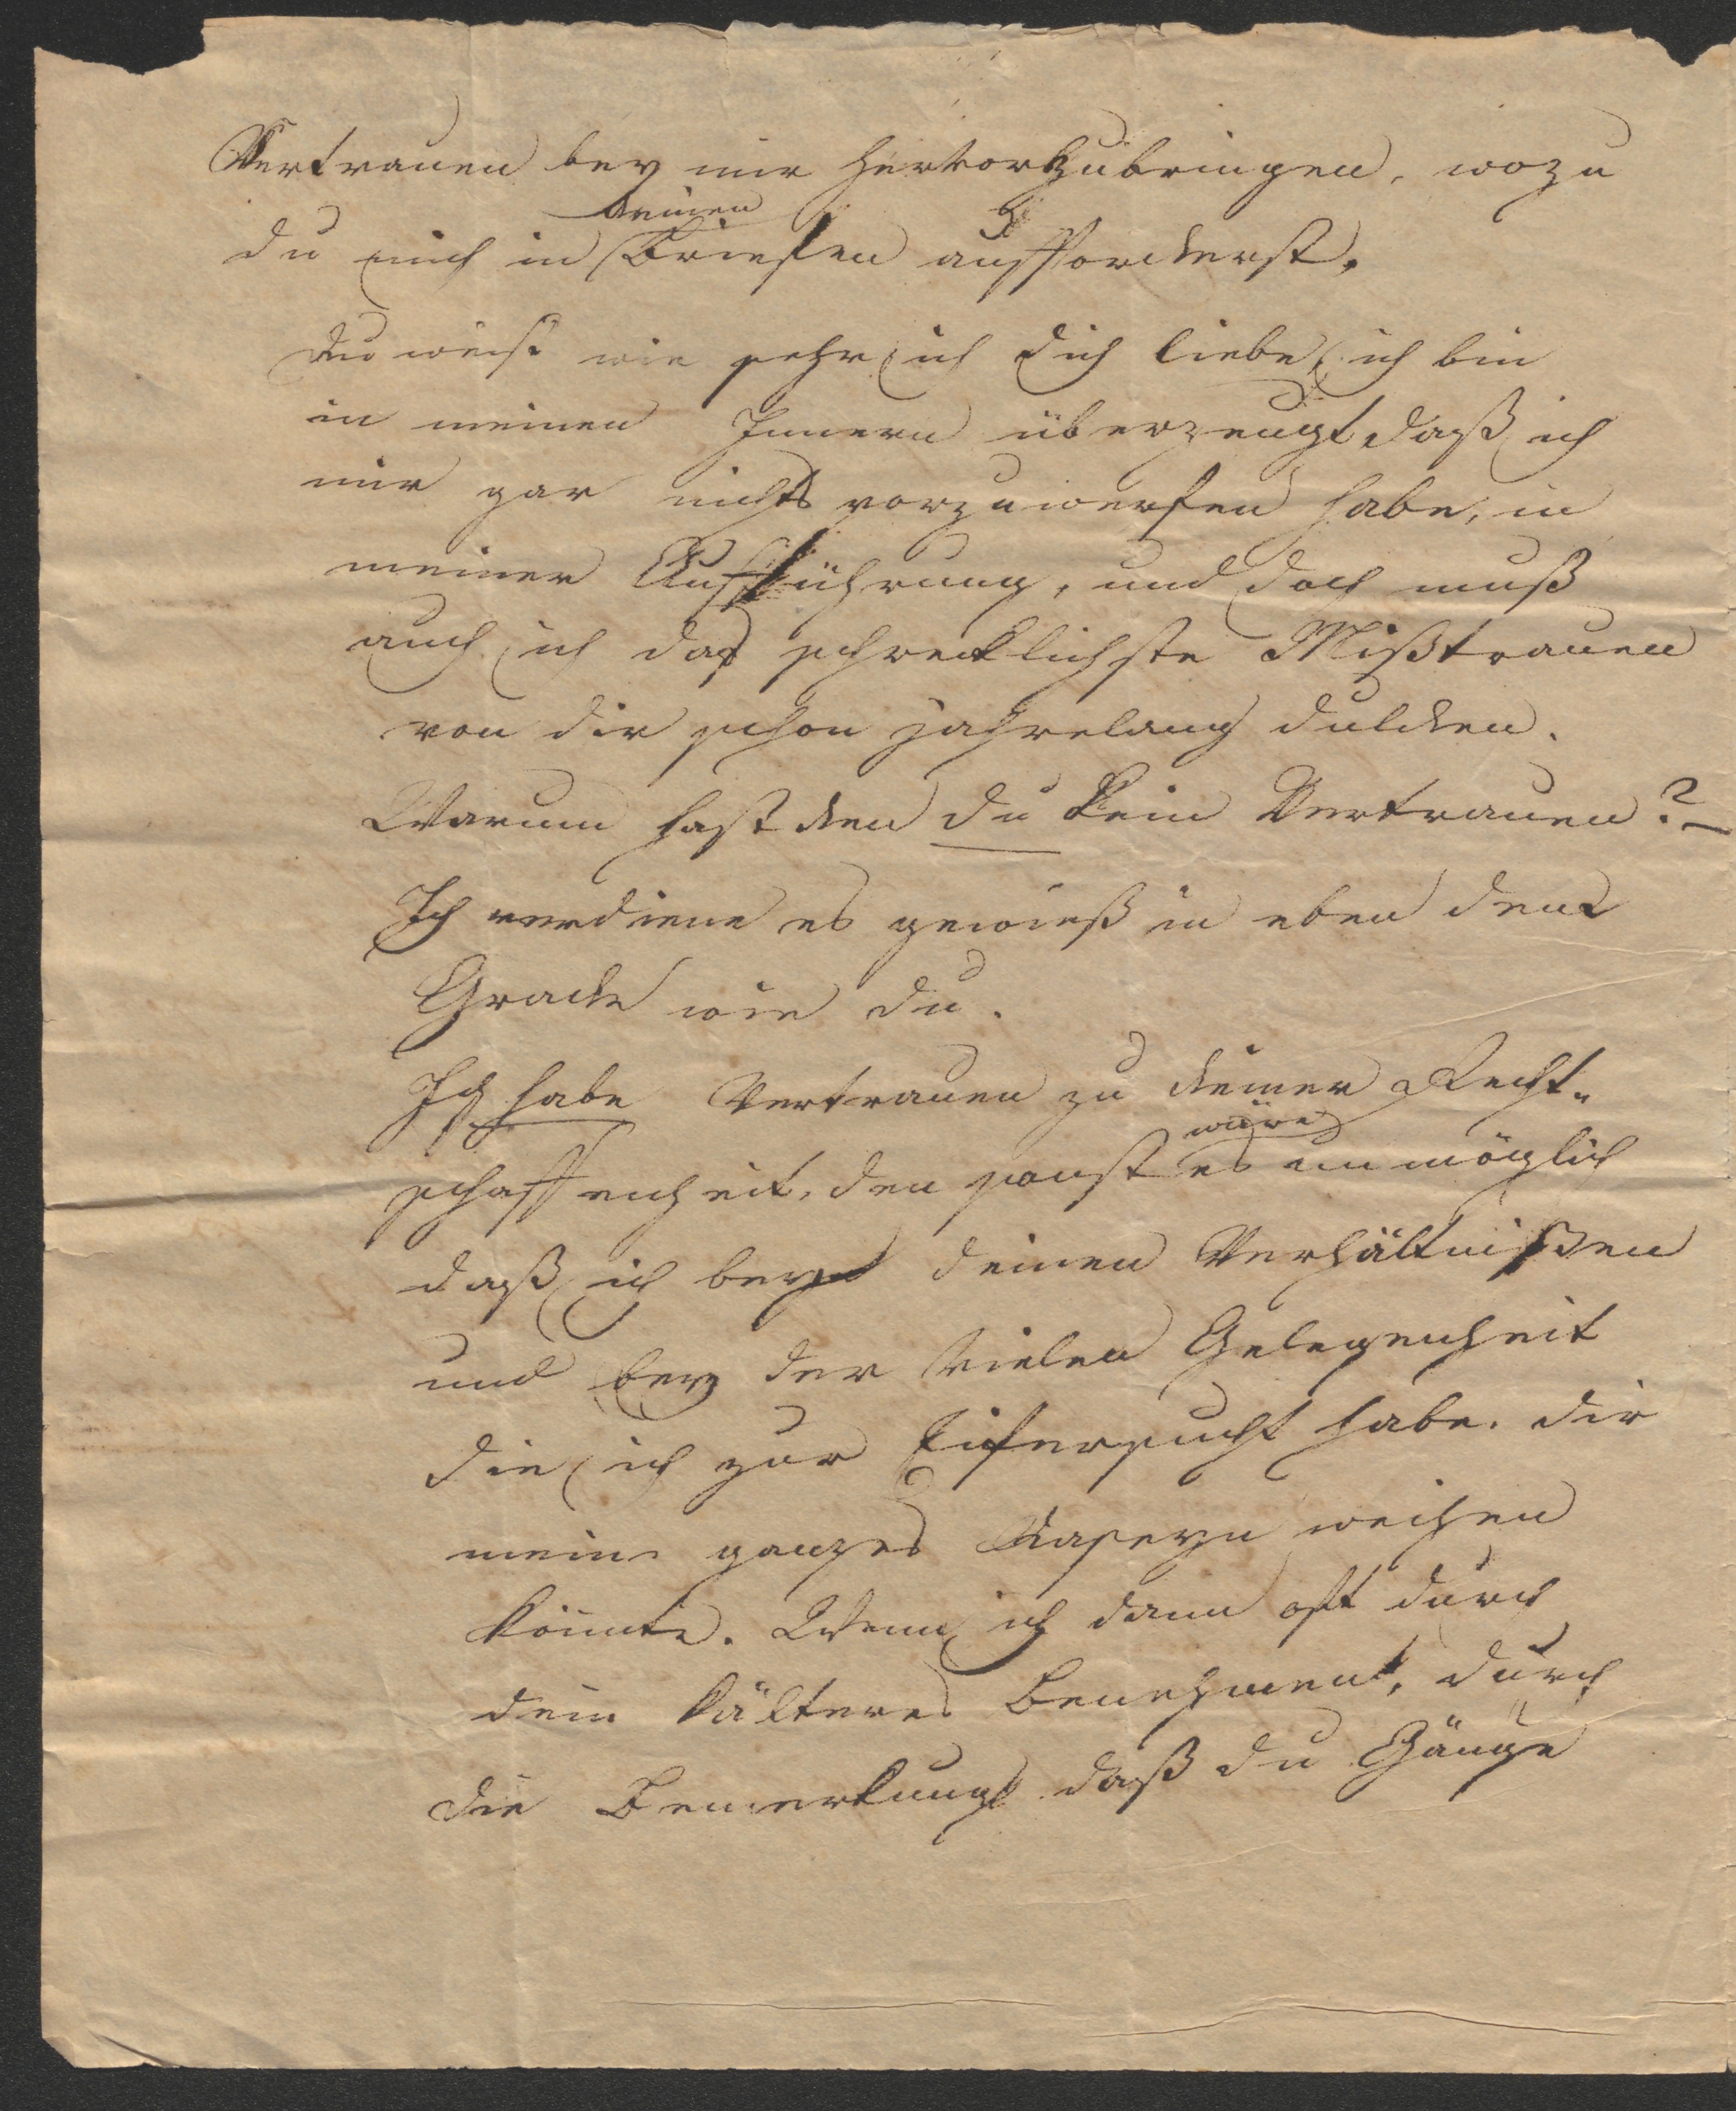 Vertrauen bey mir hervorzubringen, wozu
deinen
du mich in Briefen aufforderst.
Du weist wie sehr ich dich liebe, ich bin
in meinen Innern überzeugt daß ich
mir gar nichts vorzuwerfen habe, in
meiner Aufführung, und doch muß
auch ich das schrecklichste Mißtrauen
von dir schon jahrelang dulden.
Warum hast den du kein Vertrauen? –
Ich verdiene es gewieß in eben dem
Grade wie du.
Ich habe Vertrauen zu deiner Recht-
wäre
schaffenheit, den sonst es unmöglich
daß ich bey deinen Verhältnißen
und bey der vielen Gelegenheit
die ich zur Eifersucht habe. dir
mein ganzes Daseyn weihen
könnte. Wenn ich dann oft durch
dein kälteres Benehmen, durch
die Bemerkung daß du Gänge